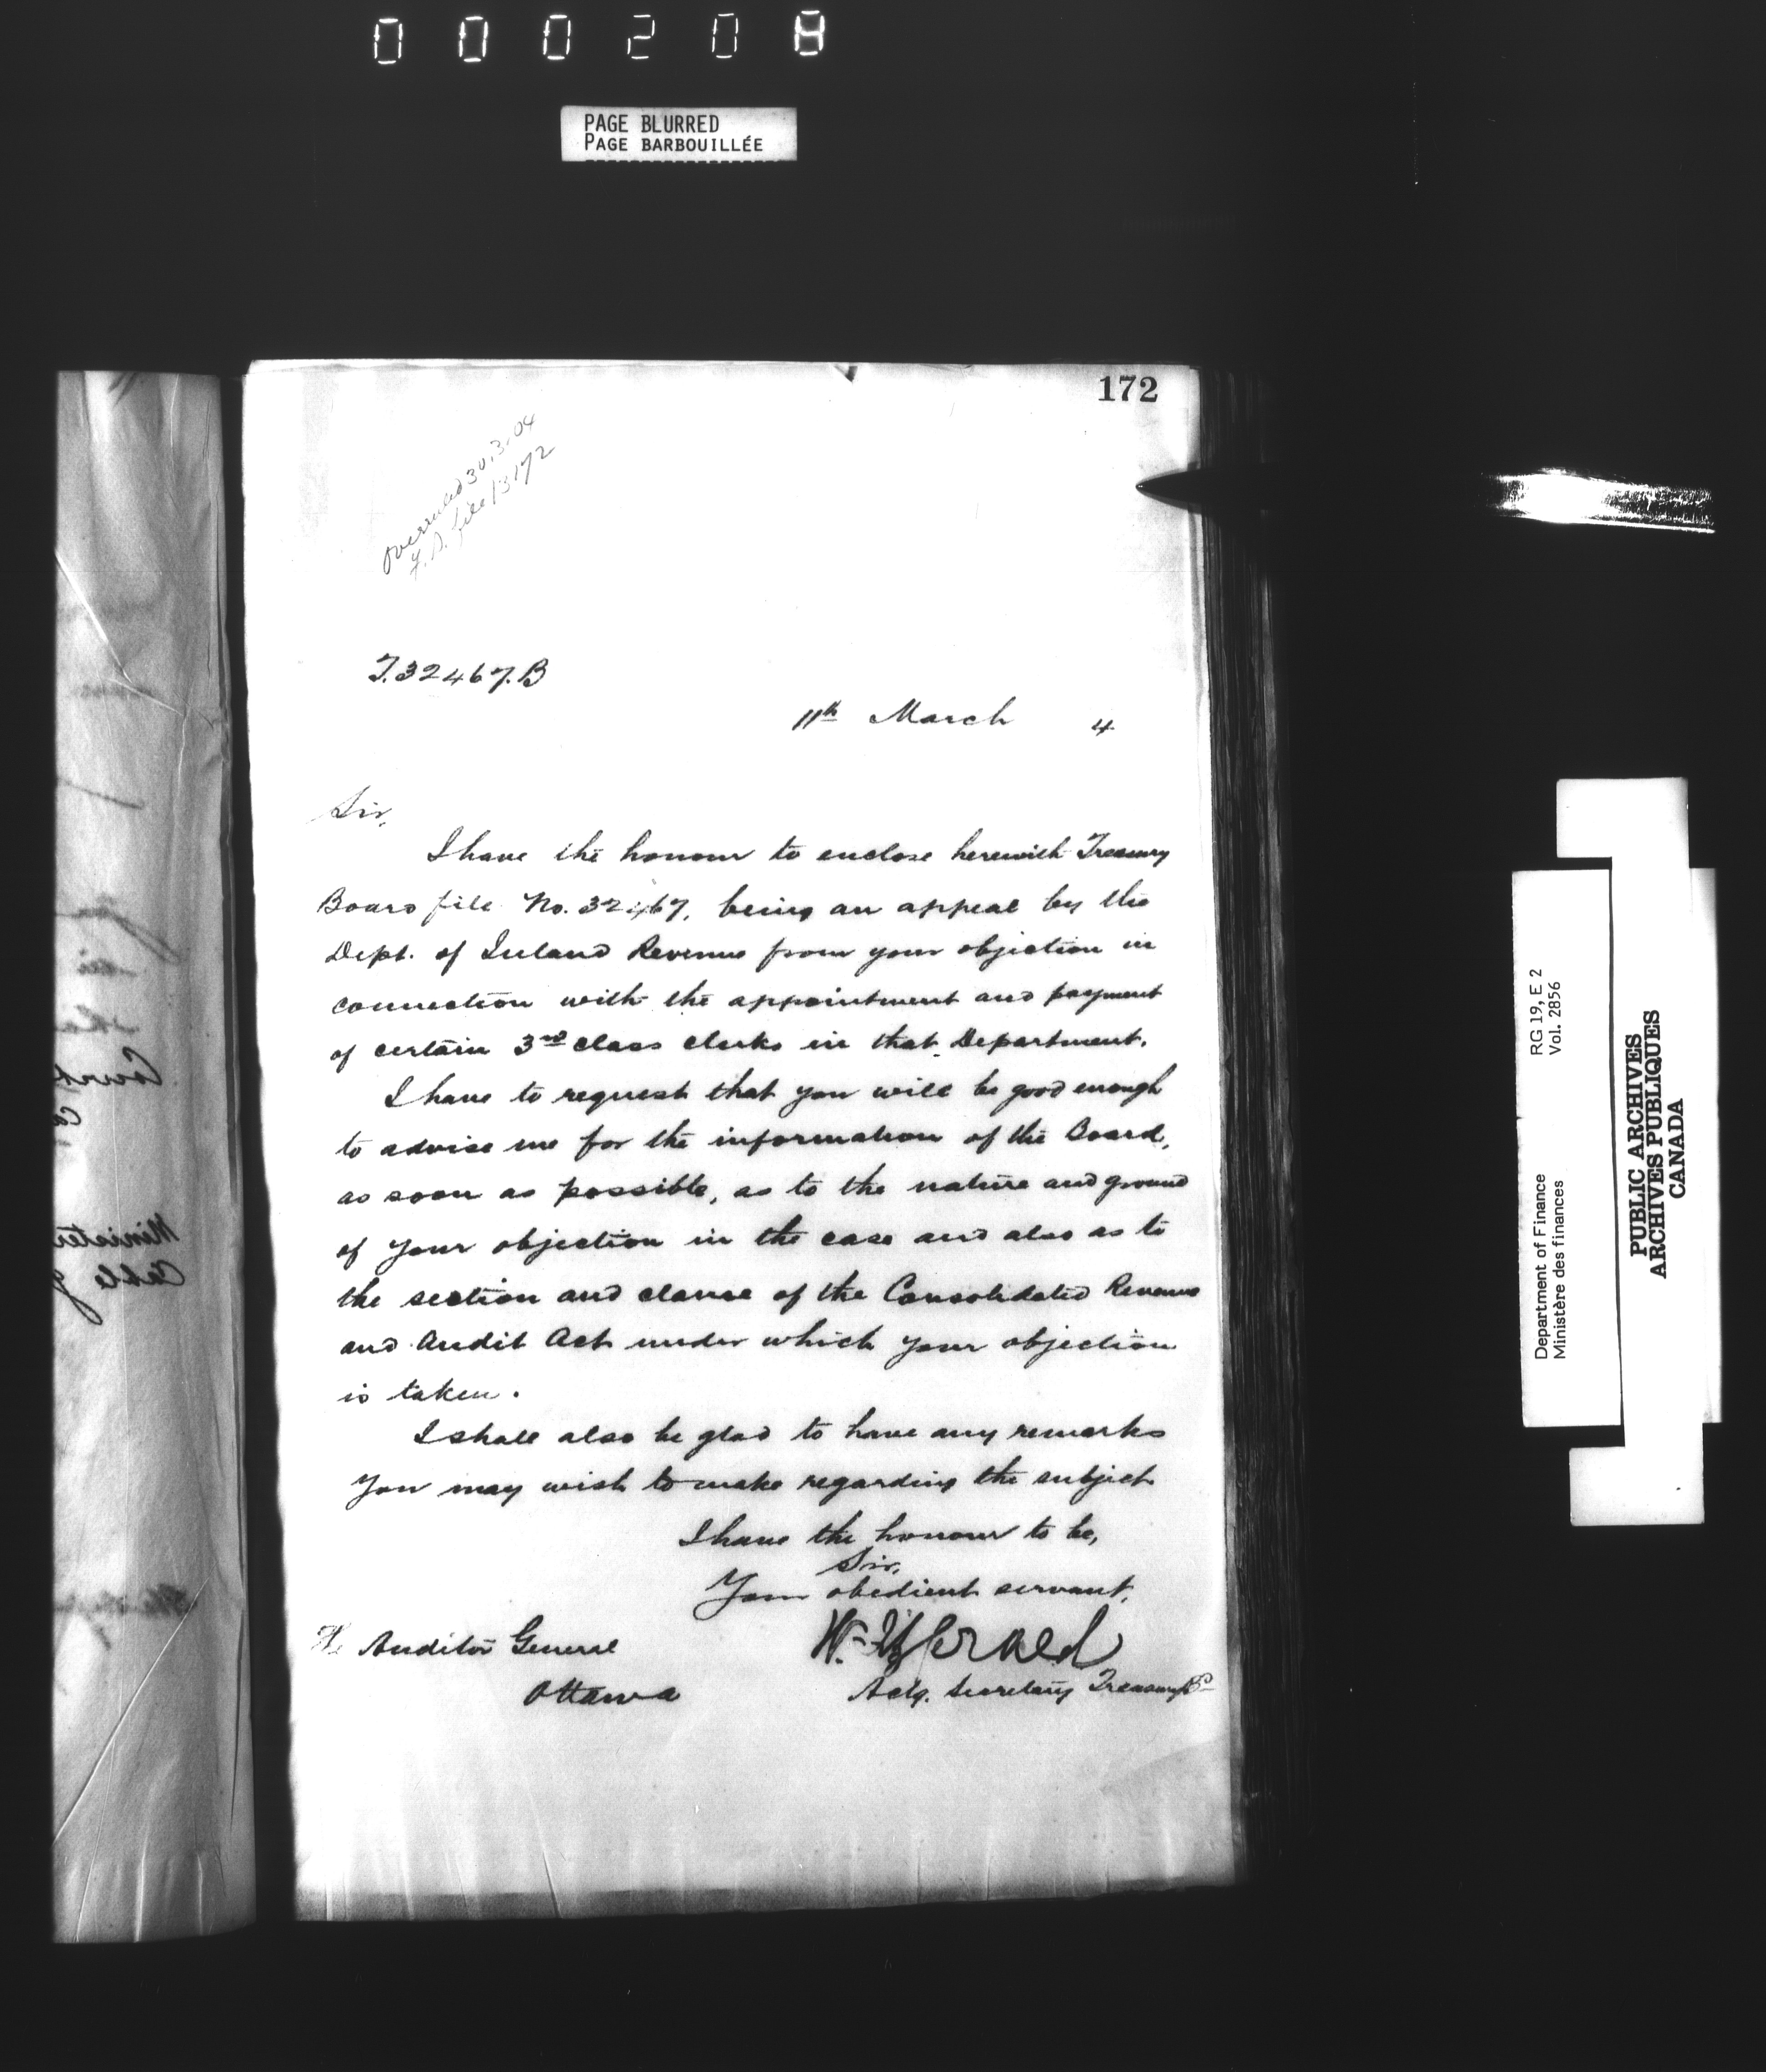 000208
PAGE BLURRED
PAGE BARBOUILLÉE
172
Overruled 30.3.04
file 13172
T.32467.B
11th March 4
Sir,
I have the honour to enclose herewith Treasury
Board file No. 32467, being an appeal by the
Dept. of Inland Revenue from your objection in
connection with the appointment and payment
of certain 3rd class clerks in that Department.
I have to request that you will be good enough
to advise me for the information of the Board,
as soon as possible, as to the nature and ground
of your objection in the case and also as to
the section and clause of the Consolidated Revenue
and Audit Act under which your objection
is taken.
I shall also be glad to have any remarks
you may wish to make regarding the subject
I have the honour to be,
Sir,
Your obedient servant,
The Auditor General
Ottawa
Actg. Secretary Treasury Bd
RG 19, E 2
Vol. 2856
Department of Finance
Ministère des finances
PUBLIC ARCHIVES
ARCHIVES PUBLIQUES
CANADA